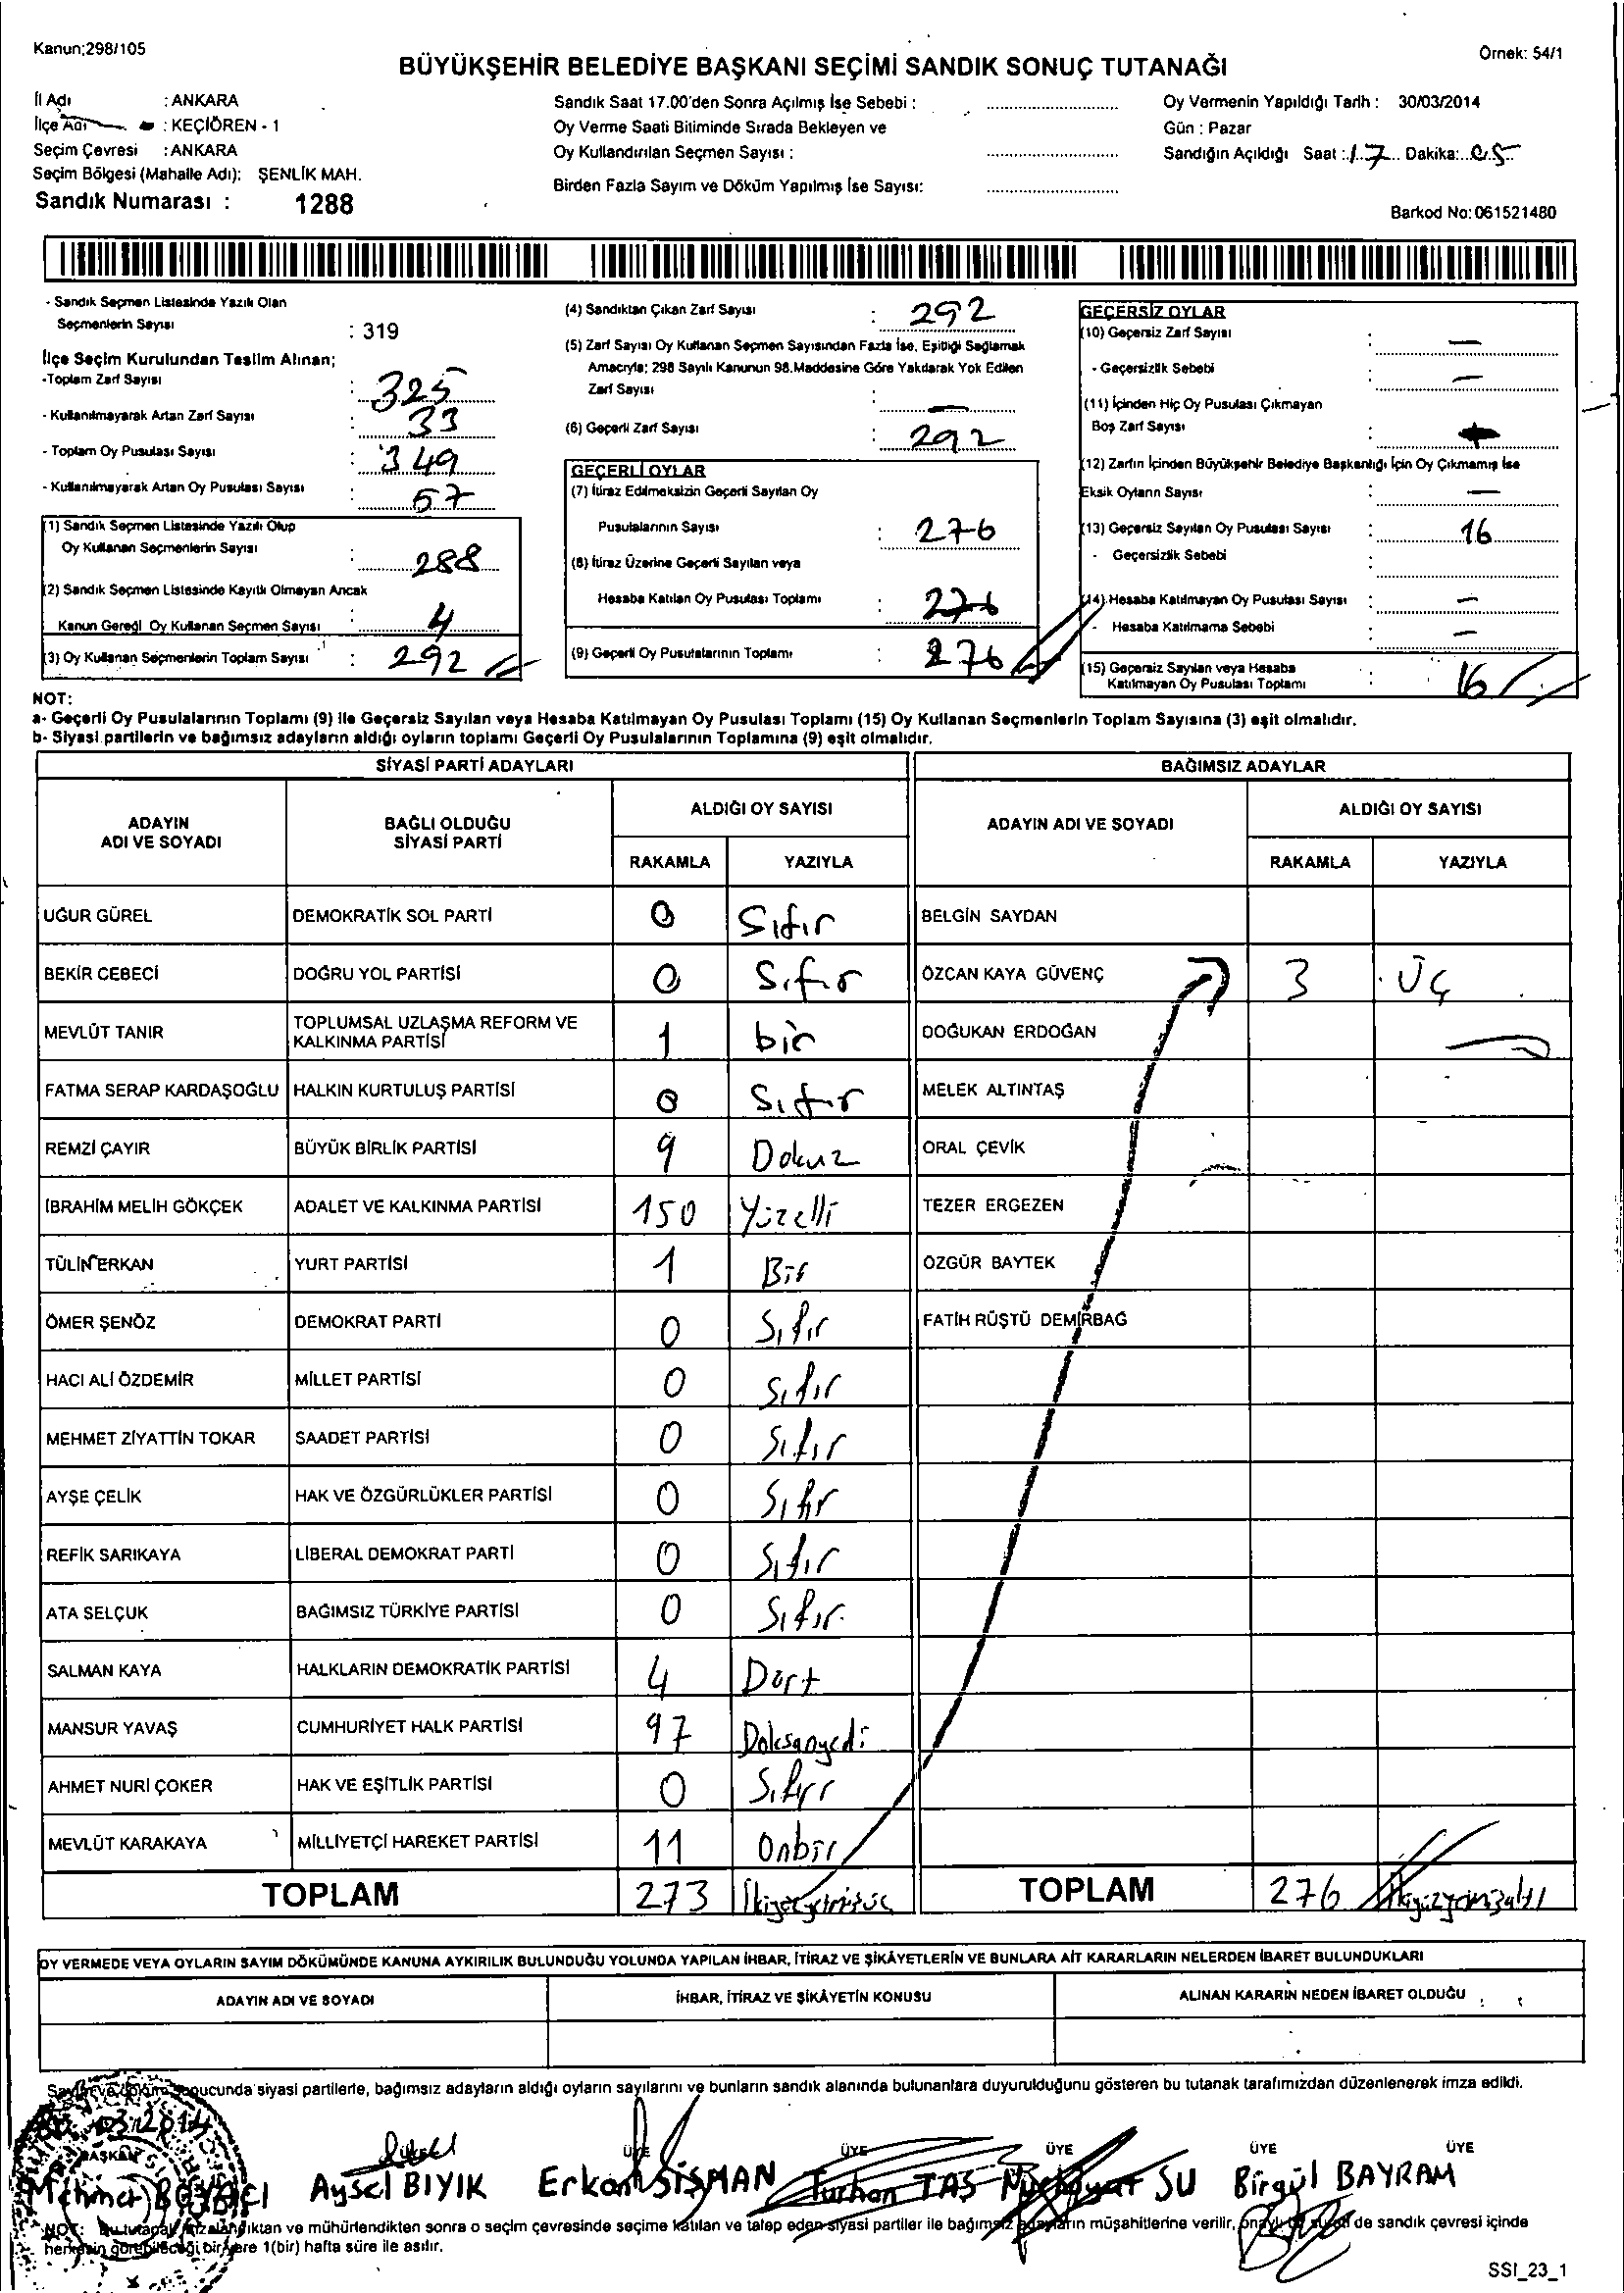 Kanun;298/105
Örnek: 54/1
BÜYÜKŞEHİR BELEDİYE BAŞKANI SEÇİMİ SANDIK SONUÇ TUTANAĞI
İl Adı : ANKARA
İlçe Adı : KEÇİÖREN - 1
Seçim Çevresi : ANKARA
Seçim Bölgesi (Mahalle Adı): ŞENLİK MAH.
Sandık Numarası : 1288
Sandık Saat 17.00'den Sonra Açılmış İse Sebebi :
Oy Verme Saati Bitiminde Sırada Bekleyen ve
Oy Kullandırılan Seçmen Sayısı :
Birden Fazla Sayım ve Döküm Yapılmış İse Sayısı:
Oy Vermenin Yapıldığı Tarih : 30/03/2014
Gün : Pazar
Sandığın Açıldığı Saat : 17 Dakika: 05
Barkod No: 061521480
- Sandık Seçmen Listesinde Yazılı Olan
Seçmenlerin Sayısı : 319
İlçe Seçim Kurulundan Teslim Alınan;
-Toplam Zarf Sayısı : 325
- Kullanılmayarak Artan Zarf Sayısı : 33
- Toplam Oy Pusulası Sayısı : 349
- Kullanılmayarak Artan Oy Pusulası Sayısı : 57
(1) Sandık Seçmen Listesinde Yazılı Olup
Oy Kullanan Seçmenlerin Sayısı : 288
(2) Sandık Seçmen Listesinde Kayıtlı Olmayan Ancak
Kanun Gereği Oy Kullanan Seçmen Sayısı : 4
(3) Oy Kullanan Seçmenlerin Toplam Sayısı : 292
(4) Sandıktan Çıkan Zarf Sayısı : 292
(5) Zarf Sayısı Oy Kullanan Seçmen Sayısından Fazla İse, Eşitliği Sağlamak
Amacıyla; 298 Sayılı Kanunun 98.Maddesine Göre Yakılarak Yok Edilen
Zarf Sayısı : —
(6) Geçerli Zarf Sayısı : 292
GEÇERLİ OYLAR
(7) İtiraz Edilmeksizin Geçerli Sayılan Oy
Pusulalarının Sayısı : 276
(8) İtiraz Üzerine Geçerli Sayılan veya
Hesaba Katılan Oy Pusulası Toplamı : 276
(9) Geçerli Oy Pusulalarının Toplamı : 276
GEÇERSİZ OYLAR
(10) Geçersiz Zarf Sayısı : —
- Geçersizlik Sebebi : —
(11) İçinden Hiç Oy Pusulası Çıkmayan
Boş Zarf Sayısı :
(12) Zarfın İçinden Büyükşehir Belediye Başkanlığı İçin Oy Çıkmamış İse
Eksik Oyların Sayısı : —
(13) Geçersiz Sayılan Oy Pusulası Sayısı : 16
- Geçersizlik Sebebi :
(14) Hesaba Katılmayan Oy Pusulası Sayısı : —
- Hesaba Katılmama Sebebi : —
(15) Geçersiz Sayılan veya Hesaba
Katılmayan Oy Pusulası Toplamı : 16
NOT:
a- Geçerli Oy Pusulalarının Toplamı (9) ile Geçersiz Sayılan veya Hesaba Katılmayan Oy Pusulası Toplamı (15) Oy Kullanan Seçmenlerin Toplam Sayısına (3) eşit olmalıdır.
b- Siyasi partilerin ve bağımsız adayların aldığı oyların toplamı Geçerli Oy Pusulalarının Toplamına (9) eşit olmalıdır.
SİYASİ PARTİ ADAYLARI
ADAYIN ADI VE SOYADI BAĞLI OLDUĞU SİYASİ PARTİ ALDIĞI OY SAYISI
RAKAMLA YAZIYLA
UĞUR GÜREL DEMOKRATİK SOL PARTİ 0 Sıfır
BEKİR CEBECİ DOĞRU YOL PARTİSİ 0 Sıfır
MEVLÜT TANIR TOPLUMSAL UZLAŞMA REFORM VE KALKINMA PARTİSİ 1 bir
FATMA SERAP KARDAŞOĞLU HALKIN KURTULUŞ PARTİSİ 0 Sıfır
REMZİ ÇAYIR BÜYÜK BİRLİK PARTİSİ 9 Dokuz
İBRAHİM MELİH GÖKÇEK ADALET VE KALKINMA PARTİSİ 150 Yüzelli
TÜLİN ERKAN YURT PARTİSİ 1 Bir
ÖMER ŞENÖZ DEMOKRAT PARTİ 0 Sıfır
HACI ALİ ÖZDEMİR MİLLET PARTİSİ 0 Sıfır
MEHMET ZİYATTİN TOKAR SAADET PARTİSİ 0 Sıfır
AYŞE ÇELİK HAK VE ÖZGÜRLÜKLER PARTİSİ 0 Sıfır
REFİK SARIKAYA LİBERAL DEMOKRAT PARTİ 0 Sıfır
ATA SELÇUK BAĞIMSIZ TÜRKİYE PARTİSİ 0 Sıfır
SALMAN KAYA HALKLARIN DEMOKRATİK PARTİSİ 4 Dört
MANSUR YAVAŞ CUMHURİYET HALK PARTİSİ 97 Doksanyedi
AHMET NURİ ÇOKER HAK VE EŞİTLİK PARTİSİ 0 Sıfır
MEVLÜT KARAKAYA MİLLİYETÇİ HAREKET PARTİSİ 11 Onbir
TOPLAM 273
BAĞIMSIZ ADAYLAR
ADAYIN ADI VE SOYADI ALDIĞI OY SAYISI
RAKAMLA YAZIYLA
BELGİN SAYDAN
ÖZCAN KAYA GÜVENÇ 3 ÜÇ
DOĞUKAN ERDOĞAN
MELEK ALTINTAŞ
ORAL ÇEVİK
TEZER ERGEZEN
ÖZGÜR BAYTEK
FATİH RÜŞTÜ DEMİRBAĞ
TOPLAM 276
OY VERMEDE VEYA OYLARIN SAYIM DÖKÜMÜNDE KANUNA AYKIRILIK BULUNDUĞU YOLUNDA YAPILAN İHBAR, İTİRAZ VE ŞİKÂYETLERİN VE BUNLARA AİT KARARLARIN NELERDEN İBARET BULUNDUKLARI
ADAYIN ADI VE SOYADI İHBAR, İTİRAZ VE ŞİKÂYETİN KONUSU ALINAN KARARIN NEDEN İBARET OLDUĞU
Sayım ve döküm sonucunda siyasi partilerle, bağımsız adayların aldığı oyların sayılarını ve bunların sandık alanında bulunanlara duyurulduğunu gösteren bu tutanak tarafımızdan düzenlenerek imza edildi.
BAŞKAN ÜYE ÜYE ÜYE ÜYE ÜYE
Aysel BIYIK Erkan ŞİŞMAN Turhan TAŞ SU Birgül BAYRAM
NOT: Bu tutanak imzalandıktan ve mühürlendikten sonra o seçim çevresinde seçime katılan ve talep eden siyasi partiler ile bağımsız adayların müşahitlerine verilir, onaylı bir sureti de sandık çevresi içinde
herkesin görebileceği bir yere 1(bir) hafta süre ile asılır.
SSI_23_1